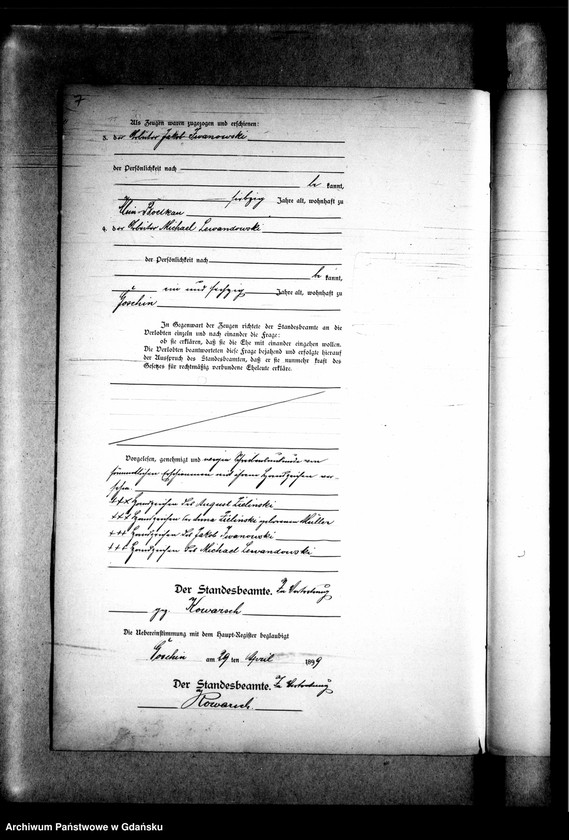 7
Als Zeugen waren zugezogen und erschienen:
3. der Arbeiter Jakob Iwanowski
der Persönlichkeit nach
be kannt,
siebzig Jahre alt, wohnhaft zu
Klein
4. der Arbeiter Michael Lewandowski
der Persönlichkeit nach
be kannt,
ein und sechzig Jahre alt, wohnhaft zu
Goschin
In Gegenwart der Zeugen richtete der Standesbeamte an die
Verlobten einzeln und nach einander die Frage:
ob sie erklären, daß sie die Ehe mit einander eingehen wollen.
Die Verlobten beantworteten diese Frage bejahend und erfolgte hierauf
der Ausspruch des Standesbeamten, daß er sie nunmehr kraft des
Gesetzes für rechtmäßig verbundene Eheleute erkläre.
Vorgelesen, genehmigt und wegen Schreibensunkunde von
sämmtlichen Erschienenen mit ihrem Handzeichen ver-
sehen
+++ Handzeichen des August Zielinski
+++ Handzeichen der Anna Zielinski geborenen Müller
+++ Handzeichen des Jakob Iwanowski
+++ Handzeichen des Michael Lewandowski
Der Standesbeamte. In Vertretung
gez. Kowarsch
Die Uebereinstimmung mit dem Haupt-Register beglaubigt
Goschin am 29 ten April 1899
Der Standesbeamte. In Vertretung
Kowarsch.
Archiwum Państwowe w Gdańsku